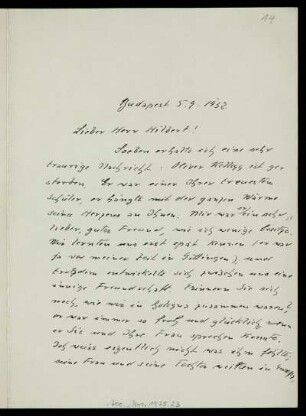 14
Budapest 5.9.1932
Lieber Herr Hilbert!
Soeben erhalte ich eine sehr
traurige Nachricht: Oliver Kellogg ist ge-
storben. Er war einer Ihrer treuesten
Schüler, er hängte mit der ganzen Wärme
seine Herzens zu Ihnen. Mir war er ein sehr
lieber, guter Freund, wie ich wenige besitze.
Wir lernten uns erst spät kennen (er war
ja vor meiner Zeit in Göttingen), und
trotzdem entwickelte sich zwischen uns eine
innige Freundschaft. Erinnern Sie sich
noch, wie wir in Bologna zusammen waren?
er war immer so froh und glücklich wenn
er Sie und Ihre Frau sprechen konnte.
Ich weiss eigentlich nicht was ihm fehlte,
meine Frau und seine Tochter weilten in